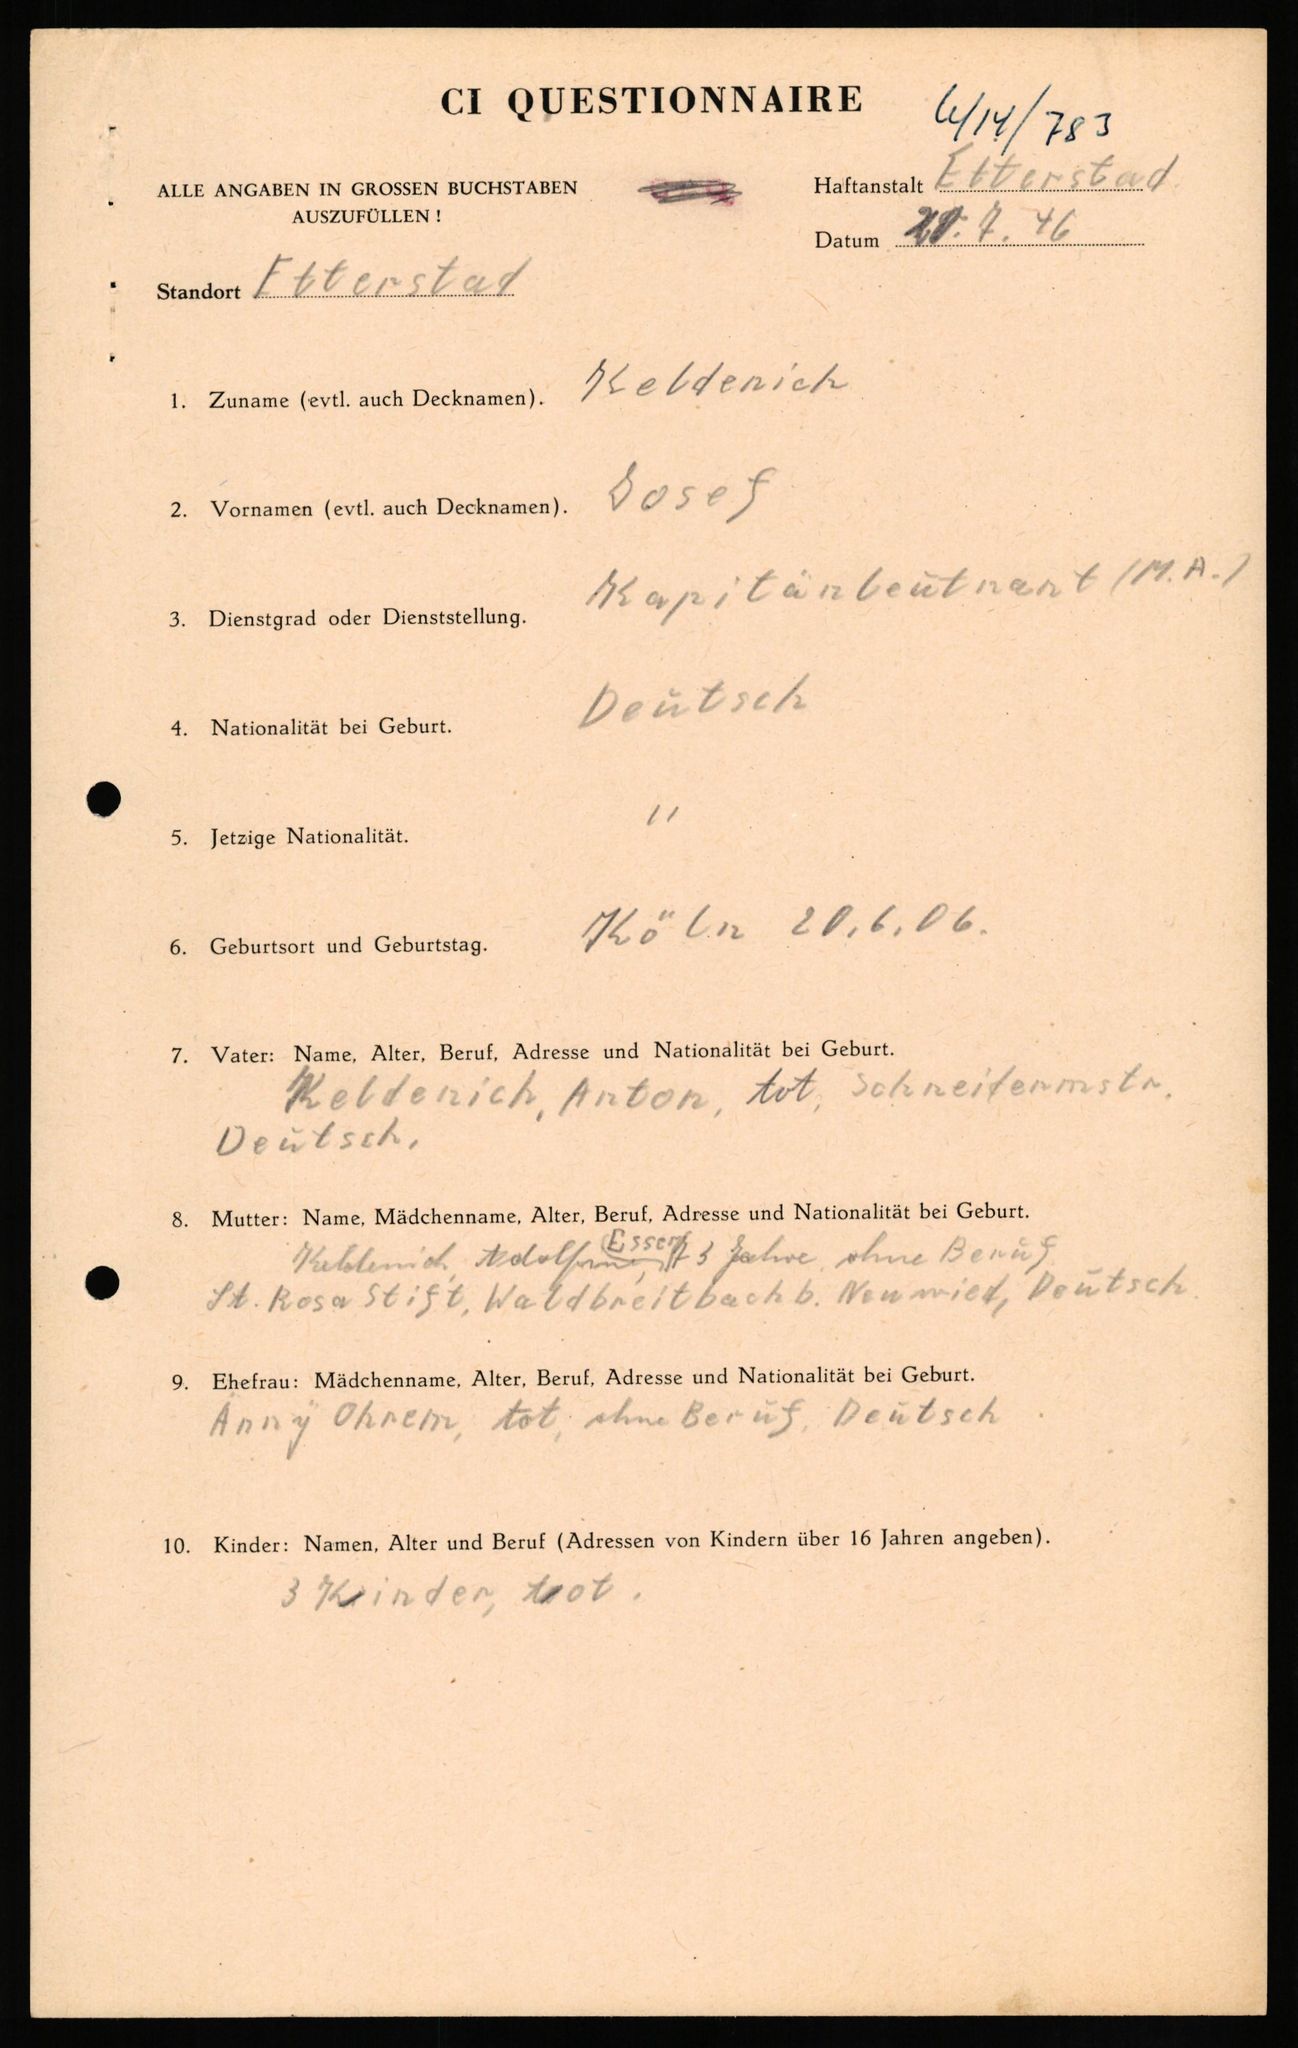 CI QUESTIONNAIRE
/14/783
ALLE ANGABEN IN GROSSEN BUCHSTABEN
AUSZUFÜLLEN !
Haftanstalt Etterstad.
Datum .7.46
Standort Etterstad
1. Zuname (evtl. auch Decknamen). Keldenich
2. Vornamen (evtl. auch Decknamen). Josef
3. Dienstgrad oder Dienststellung. Kapitänleutnant (M.A.)
4. Nationalität bei Geburt. Deutsch
5. Jetzige Nationalität. "
6. Geburtsort und Geburtstag. Köln 20.6.06.
7. Vater: Name, Alter, Beruf, Adresse und Nationalität bei Geburt.
Keldenich, Anton, tot, Schneidermstr.
Deutsch.
8. Mutter: Name, Mädchenname, Alter, Beruf, Adresse und Nationalität bei Geburt.
Keldenich, 73 Jahre, ohne Beruf
St. Rosa Stift, Waldbreitbach b. Neuwied, Deutsch.
9. Ehefrau: Mädchenname, Alter, Beruf, Adresse und Nationalität bei Geburt.
Änny Ohrem, tot, ohne Beruf, Deutsch
10. Kinder: Namen, Alter und Beruf (Adressen von Kindern über 16 Jahren angeben).
3 Kinder, tot.